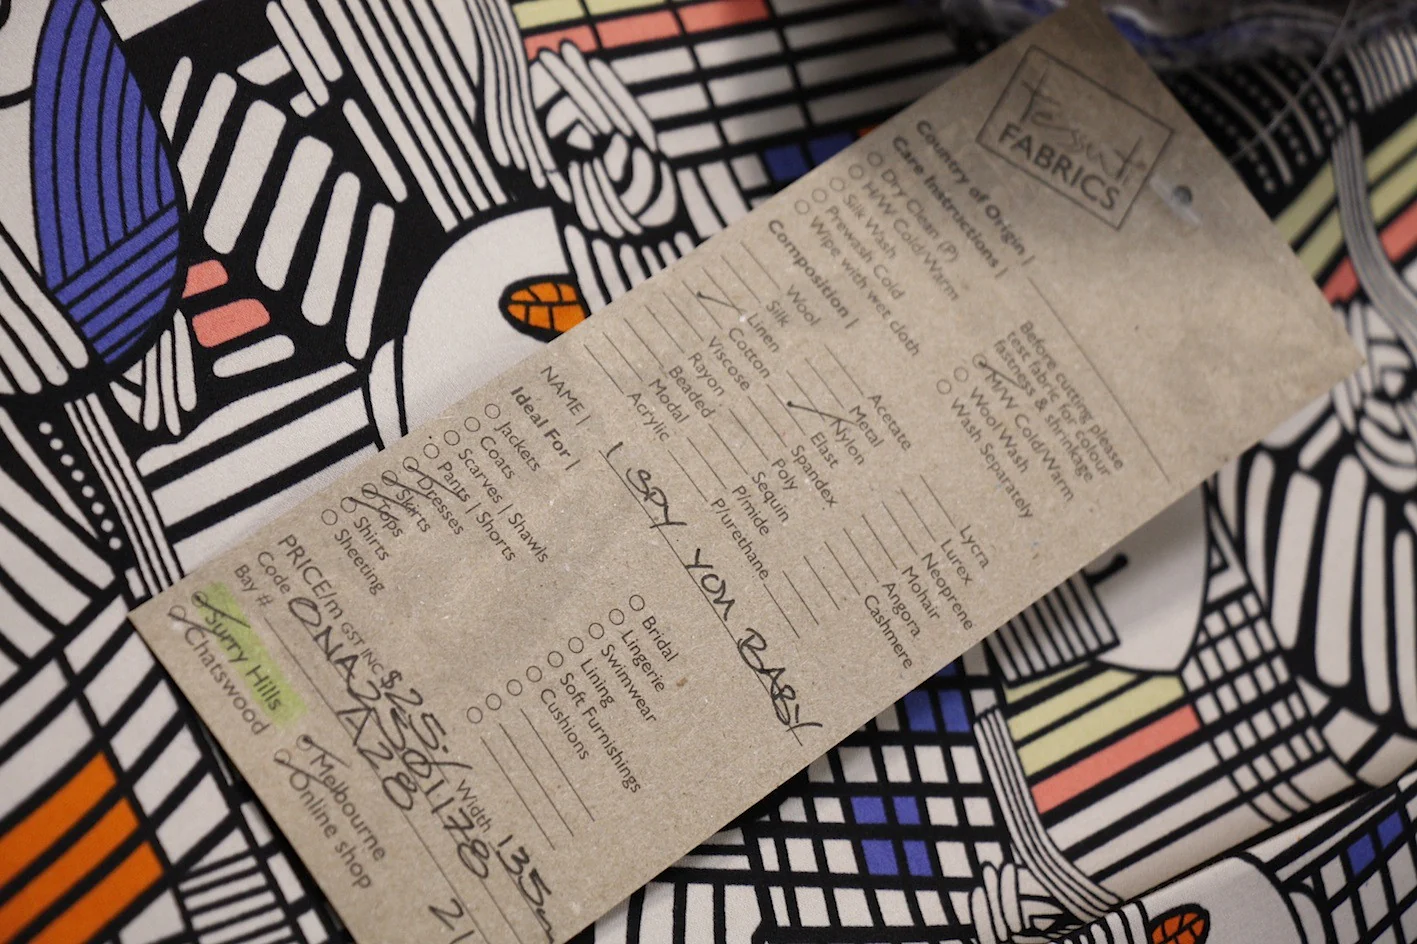 Tessuti
FABRICS
Country of Origin |
Care Instructions |
Dry Clean (P)
H/W Cold/Warm
Silk Wash
Prewash Cold
Wipe with wet cloth
Before cutting please
test fabric for colour
fastness & shrinkage
M/W Cold/Warm
Wool Wash
Wash Separately
Composition |
Wool
Silk
Linen
Cotton
Viscose
Rayon
Beaded
Modal
Acrylic
Acetate
Metal
Nylon
Elast
Spandex
Poly
Sequin
P/mide
P/urethane
Lycra
Lurex
Neoprene
Mohair
Angora
Cashmere
NAME | I SPY YOU BABY
Ideal For |
Jackets
Coats
Scarves | Shawls
Pants | Shorts
Dresses
Skirts
Tops
Shirts
Sheeting
Bridal
Lingerie
Swimwear
Lining
Soft Furnishings
Cushions
PRICE/m GST INC $25./ Width 135
Code ONA2501178
Bay # A28
Surry Hills
Chatswood
Melbourne
Online shop